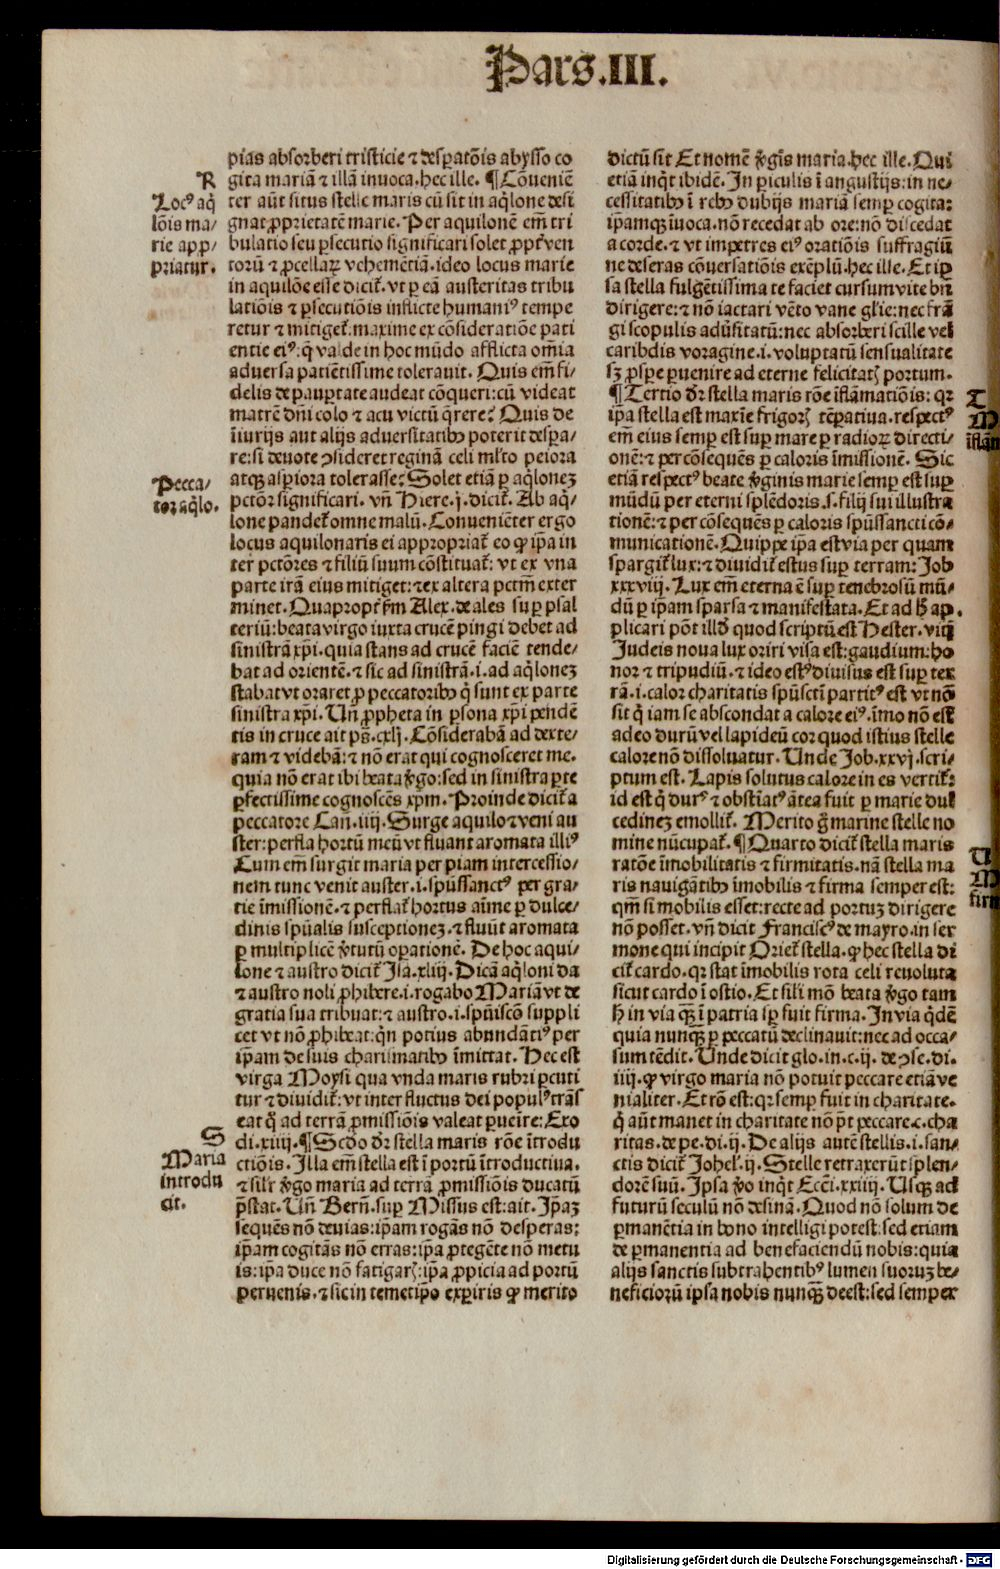 Pars.III.
pias absorberi tristicie ⁊ desꝑatōis abysso co
gita mariā ⁊ illā inuoca.hec ille. ¶ Cōueniē
ter aūt situs stelle maris cū sit in aq̇lone desi
gnat ꝓprietatē marie. Per aquilonē em̄ tri
bulatio seu ꝑsecutio significari solet ꝓpt̄ ven
torū ⁊ ꝓcellaꝝ vehemētiā.ideo locus marie
in aquilōe esse dicit̄.vt ꝑ eā austeritas tribu
lationis ⁊ ꝑsecutiōis inflicte humaniꝰ tempe
retur ⁊ mitiget̄:maxime ex cōsideratiōe pati
entie eiꝰ:q̄ valde in hoc mūdo afflicta om̄ia
aduersa patiētissime tolerauit. Quis em̄ fi⸗
delis de pauꝑtate audeat cōqueri:cū videat
matrē dn̄i colo ⁊ acu victū q̄rere: Quis de
īiurijs aut alijs aduersitatibꝫ poterit desꝑa⸗
re:si deuote ꝯsideret reginā celi ml̄to peiora
atqꝫ asꝑiora tolerasse: Solet etiā ꝑ aq̇lonez
pctōr significari. vn̄ Hiere.j.dicit̄. Ab aq̇⸗
lone pandet̄ omne malū. Conueniēter ergo
locus aquilonaris ei appropriat̄ eo ꝙ ip̄a in
ter pctōres ⁊ filiū suum cōstituat̄: vt ex vna
parte irā eius mitiget:⁊ ex altera pctm̄ exter
minet. Quapropt̄ ẜm Alex. de ales suꝑ psal
teriū:beata virgo iuxta crucē pingi debet ad
sinistrā xp̄i.quia stans ad crucē faciē tende⸗
bat ad orientē.⁊ sic ad sinistrā.i.ad aq̇lonez
stabat vt oraret ꝓ peccatoribꝫ q̇ sunt ex parte
sinistra xp̄i. Un̄ ꝓpheta in ꝑsona xp̄i pendē
tis in cruce ait ps̄.cxlj. Cōsiderabā ad dexte⸗
ram ⁊ videbā:⁊ nō erat qui cognosceret me.
quia nō erat ibi beata v̄go:sed in sinistra ꝑte
ꝑfectissime cognoscēs xpm̄. Proinde dicit̄ a
peccatore Can.iiij. Surge aquilo ⁊ veni au
ster:perfla hortū meū vt fluant aromata illiꝰ
Cum em̄ surgit maria per piam intercessio⸗
nem tunc venit auster.i.spūssanctꝰ per gra⸗
tie īmissionē.⁊ perflat̄ hortus aīme ꝑ dulce⸗
dinis spūalis susceptionez.⁊ fluūt aromata
ꝑ multiplicē v̄tutū oꝑationē. De hoc aqui⸗
lone ⁊ austro dicit̄ Isa.xliij. Dicā aq̇loni da
⁊ austro noli ꝓhibere.i.rogabo Mariā vt de
gratia sua tribuat:⁊ austro.i.spūiscō suppli
cet vt nō ꝓhibeat:q̄n potius abundātiꝰ per
ip̄am de suis charismatibꝫ īmittat. Hec est
virga Moysi qua vnda maris rubri ꝑcuti
tur ⁊ diuidit̄:vt inter fluctus dei populꝰ trās
eat q̄ ad terrā ꝓmissiōis valeat ꝑueire: Exo
di.xiiij. ¶ Scd̄o dr̄ stella maris rōe ītrodu
ctiōis. Illa em̄ stella est ī portū ītroductiua.
⁊ sil̄r v̄go maria ad terrā ꝓmissiōis ducatū
p̄stat. Un̄ Bern̄.suꝑ Missus est:ait. Ip̄aꝫ
sequēs nō deuias:ip̄am rogās nō desperas:
ip̄am cogitās nō erras:ip̄a ꝓtegēte nō metu
is:ip̄a duce nō fatigar̄:ip̄a ꝓpicia ad portū
peruenis.⁊ sic in temetip̄o exꝑiris ꝙ merito
R
Locꝰ aq̇
lōis ma⸗
rie apꝓ⸗
priatur.
Pecca⸗
tor aq̇lo.
S
Maria
introdu
cit.
dictū sit Et nomē v̄gīs maria.hec ille. Qui
etiā inq̇t ibidē. In ꝑiculis ī angustijs:in ne⸗
cessitatibꝫ ī rebꝫ dubijs mariā semꝑ cogita:
ip̄amqꝫ īuoca.nō recedat ab ore:nō discedat
a corde.⁊ vt impetres eiꝰ oratiōis suffragiū
ne deseras cōuersatiōis exēplū.hec ille. Et ip̄
sa stella fulgētissima te faciet cursum vite bn̄
dirigere:⁊ nō iactari vēto vane gl̄ie:nec frā
gi scopulis aduʼsitatū:nec absorberi scille vel
caribdis voragine.i.voluptatū sensualitate
sꝫ ꝓsꝑe ꝑuenire ad eterne felicitat̄ portum.
¶ Tertio dr̄ stella maris rōe īflāmatiōis: qꝛ
ip̄a stella est maxīe frigoꝝ tēꝑatiua.respectꝰ
em̄ eius semꝑ est suꝑ mare ꝑ radioꝝ directi⸗
onē:⁊ per cōsequēs ꝑ caloris īmissionē. Sic
etiā respectꝰ beate v̄ginis marie semꝑ est suꝑ
mūdū per eterni splēdoris.s.filij sui illustra
tionē:⁊ per cōsequēs ꝑ caloris spūssancti cō⸗
municationē. Quippe ip̄a est via per quam
spargit̄ lux:⁊ diuidit̄ estus suꝑ terram: Job
xxxviij. Lux em̄ eterna ē suꝑ tenebrosū mū⸗
dū ꝑ ipsam sparsa ⁊ manifestata. Et ad h̄ ap
plicari pōt illd̄ quod scriptū est Hester.viij
Judeis noua lux oriri visa est:gaudium:ho
nor ⁊ tripudiū.⁊ ideo estꝰ diuisus est suꝑ ter
rā.i.calor charitatis spūsctī partitꝰ est vt nō
sit q̇ iam se abscondat a calore eiꝰ.īmo nō est
adeo durū vel lapideū cor quod istius stelle
calore nō dissoluatur. Unde Job.xxvj.scri⸗
ptum est. Lapis solutus calore in es vertit̄:
id est q̇ durꝰ ⁊ obstīatꝰ ātea fuit ꝑ marie dul
cedinez emollit̄. Merito g̊ marine stelle no
mine nūcupat̄. ¶ Quarto dicit̄ stella maris
ratōe īmobilitatis ⁊ firmitatis.nā stella ma
ris nauigātibꝫ īmobilis ⁊ firma semper est:
qm̄ si mobilis esset:recte ad portuꝫ dirigere
nō posset. vn̄ dicit Franciscꝰ de mayro.in ser
mone qui incipit Oriet̄ stella. ꝙ hec stella di
cit̄ cardo.qꝛ stat īmobilis rota celi reuoluta
sicut cardo ī ostio. Et sil̄i mō beata v̄go tam
h̄ in via qꝫ ī patria sꝑ fuit firma. In via q̇dē
quia nunqꝫ ꝑ peccatū declinauit:nec ad occa⸗
sum tēdit. Unde dicit glo.in.c.ij. de ꝯse.di.
iiij.ꝙ virgo maria nō potuit peccare etiā ve
nialiter. Et rō est:qꝛ semꝑ fuit in charitate.
q̇ aūt manet in charitate nō p̄t peccare.c.cha
ritas.de pe.di.ij. De alijs autē stellis.i.san⸗
ctis dicit̄ Johel̄.ij. Stelle retraxerūt splen⸗
dorē suū. Ipsa v̄o inq̇t Ecci.xxiiij. Usqꝫ ad
futurū seculū nō desinā. Quod nō solum de
ꝑmanētia in bono intelligi potest:sed etiam
de ꝑmanentia ad benefaciendū nobis:quia
alijs sanctis subtrahentibꝰ lumen suoruꝫ be⸗
neficiorū ipsa nobis nunqꝫ deest:sed semper
T
īflām
U
firm
Digitalisierung gefördert durch die Deutsche Forschungsgemeinschaft - DFG